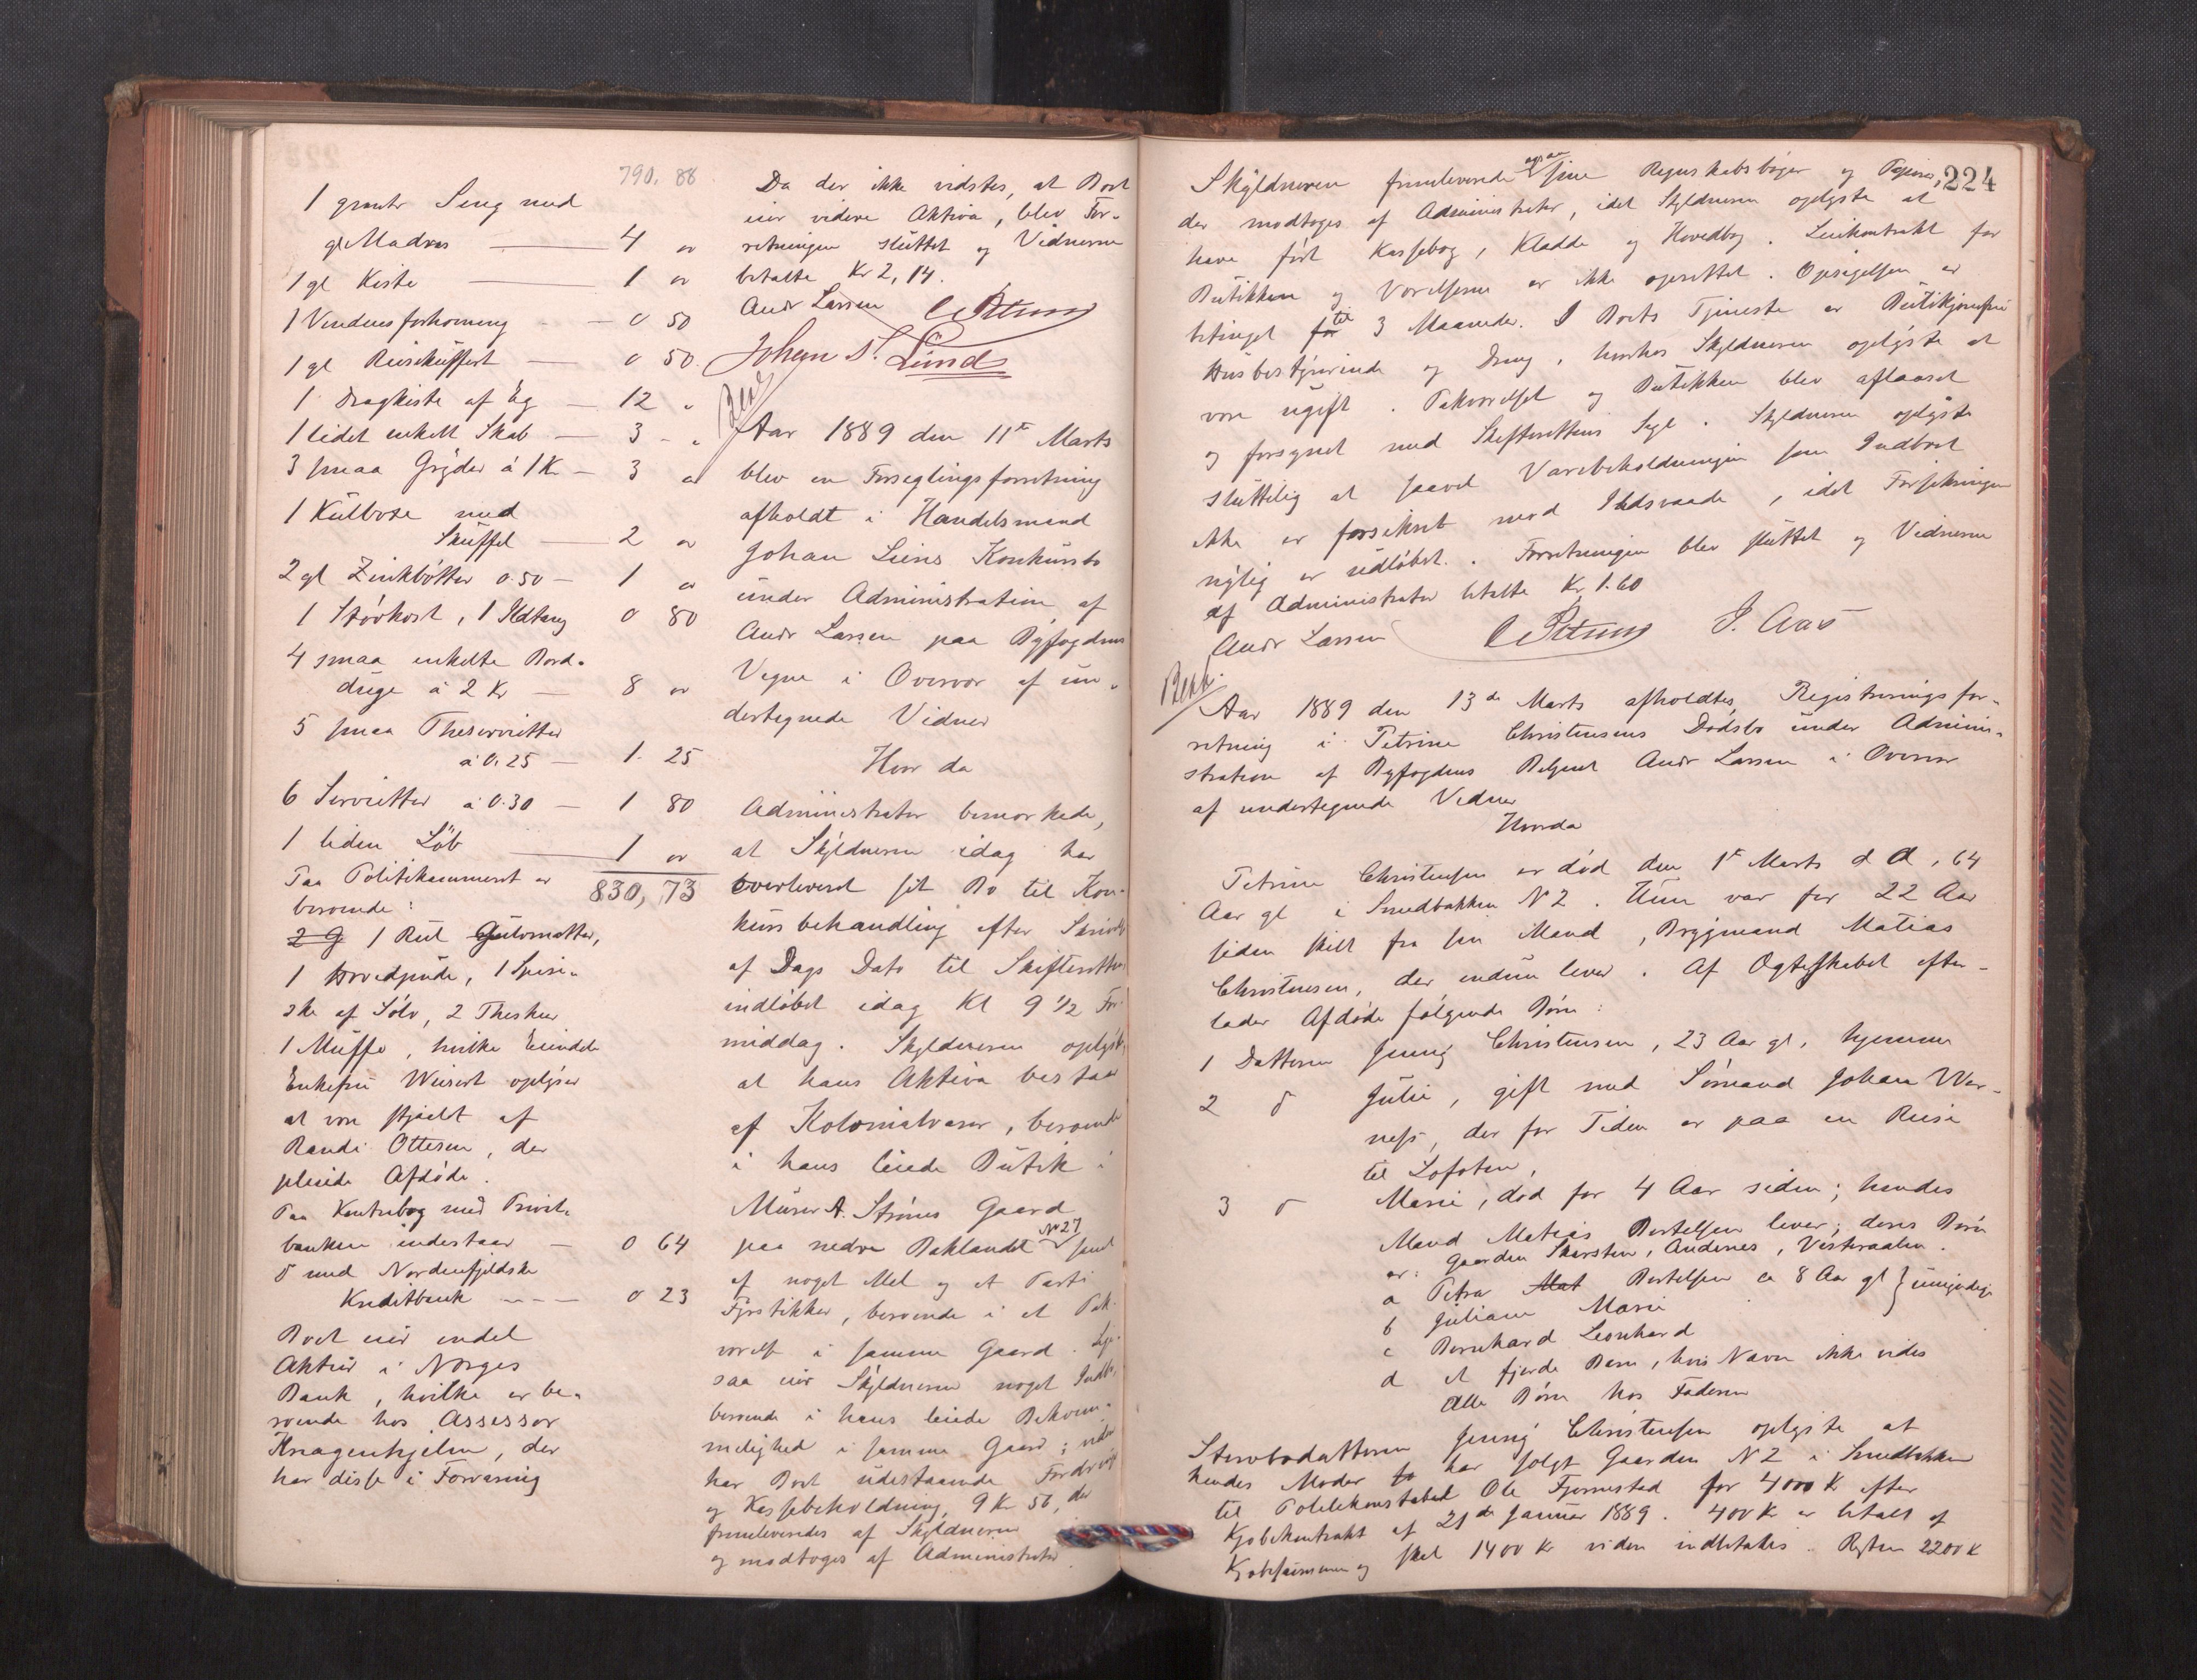 790. 88
1 grantr Seng med
gl Madras — 4 „
1 gl Kiste — 1 „
1 Vinduesforhæng — 0 50
1 gl Reisekuffert — 0 50
1 Dragkiste af Eg — 12 „
1 lidet enkelt Skab — 3 „
3 smaa Gryder á 1 K — 3 „
1 Kulboxe med
Skuffel — 2 „
2 gl Zinkbøtter 0.50 — 1 „
1 Støvkost, 1 Ildtang 0 80
4 smaa enkelte Bord-
duge á 2 Kr — 8 „
5 smaa Theservietter
á 0.25 — 1. 25
6 Servietter á 0.30 — 1 80
1 liden Löb — 1 „
Paa Politikammeret er 830,73
beroende:
2 G 1 Rul Gulvmatter,
1 Hovedpude, 1 Spise-
ske af Sølv, 2 Theskeer
1 Muffe, hvilke Eiendele
Enkefru Weisert oplyser
at være stjaalet af
Randi Ottesen, der
pleiede Afdøde.
Paa Kontrabog med Privat-
banken indestaar — 0 64
d med Nordenfjeldske
Kreditbank — 0 23
Boet eier endel
Aktier i Norges
Bank, hvilke er be-
roende hos Assessor
Knagenhjelm, der
har disse i Forvaring
Da der ikke vidstes, at Boet
eier videre Aktiva, blev For-
retningen sluttet og Vidnerne
betalte Kr 2,14.
Andr Larsen
Johan S. Lund
Besk
Aar 1889 den 11te Marts
blev en Forseglingsforretning
afholdt i Handelsmand
Johan Leins Konkursbo
under Administration af
Andr Larsen paa Byfogdens
Vegne i Overvær af un-
dertegnede Vidner
Hvor da
Administrator bemærkede,
at Skyldneren idag har
overleveret sit Bo til Kon-
kursbehandling efter Skrivelse
af Dags Dato til Skifteretten
indløbet idag Kl 9 1/2 For-
middag. Skyldneren oplyste,
at hans Aktiva bestaar
af Kolonialvarer, beroende
i hans leiede Butik i
Murer A. Strøms Gaard
paa nedre Baklandet N 27 samt
af noget Mel og et Parti
Fyrstikker, beroende i et Pak-
værelse i samme Gaard. Lige-
saa eier Skyldneren noget Indbo,
beroende i hans leiede Bekvem-
melighed i samme Gaard; videre
har Boet udestaaende Fordringer
og Kassebeholdning, 9 Kr 50, der
fremleveredes af Skyldneren
og modtoges af Administrator
224
Skyldneren fremleverede ogsaa sine Regnskabsbøger og Papirer,
der modtoges af Administrator, idet Skyldneren oplyste at
have ført Kassebog, Kladde og Hovedbog. Leiekontrakt for
Butikken og Værelserne er ikke oprettet. Opsigelsen er
betinget for til 3 Maaneder. I Boets Tjeneste er Butikjomfru
Husbestyrerinde og Dreng, hvorhos Skyldneren oplyste at
være ugift. Pakværelset og Butikken blev aflaaset
og forsynet med Skifterettens Segl. Skyldneren oplyste
sluttelig at saavel Varebeholdningen som Indboet
ikke er forsikret mod Ildsvaade, idet Forsikringen
nylig er udløbet. Forretningen blev sluttet og Vidnerne
af Administrator betalte Kr 1.60
Andr Larsen J. Aas
Besk.
Aar 1889 den 13de Marts afholdtes Registreringsfor-
retning i Petrine Christensens Dødsbo under Admini-
stration af Byfogdens Betjent Andr Larsen i Overvær
af undertegnede Vidner
Hvorda
Petrine Christensen er død den 1te Marts d A, 64
Aar gl i Smedbakken N 2. Hun var for 22 Aar
siden skilt fra sin Mand, Bryggmand Matias
Christensen, der endnu lever. Af Ægteskabet efter-
lader Afdøde følgende Børn:
1 Datteren Jenny Christensen, 23 Aar gl, hjemme
2 d Julie, gift med Sømand Johan Wær-
ness, der for Tiden er paa en Reise
til Lofoten,
3 d Marie, død for 4 Aar siden; hendes
Mand Matias Bertelsen lever; deres Børn
er: Gaarden Skarsten, Andenes, Vesteraalen.
a Petra Mat Bertelsen ca 8 Aar gl } umyndige
b Juliane Marie
c Bernhard Leonhard
d et fjerde Barn, hvis Navn ikke vides
Alle Børn hos Faderen
Stervbodatteren Jenny Christensen oplyste at
hendes Moder har solgt Gaarden N 2 i Smedbakken
til Politikonstabel Ole Fjermestad for 4000 Kr efter
Kjøbekontrakt af 21de Januar 1889. 400 Kr er betalt af
Kjøbesummen og skal 1400 Kr videre indbetales. Resten 2200 K